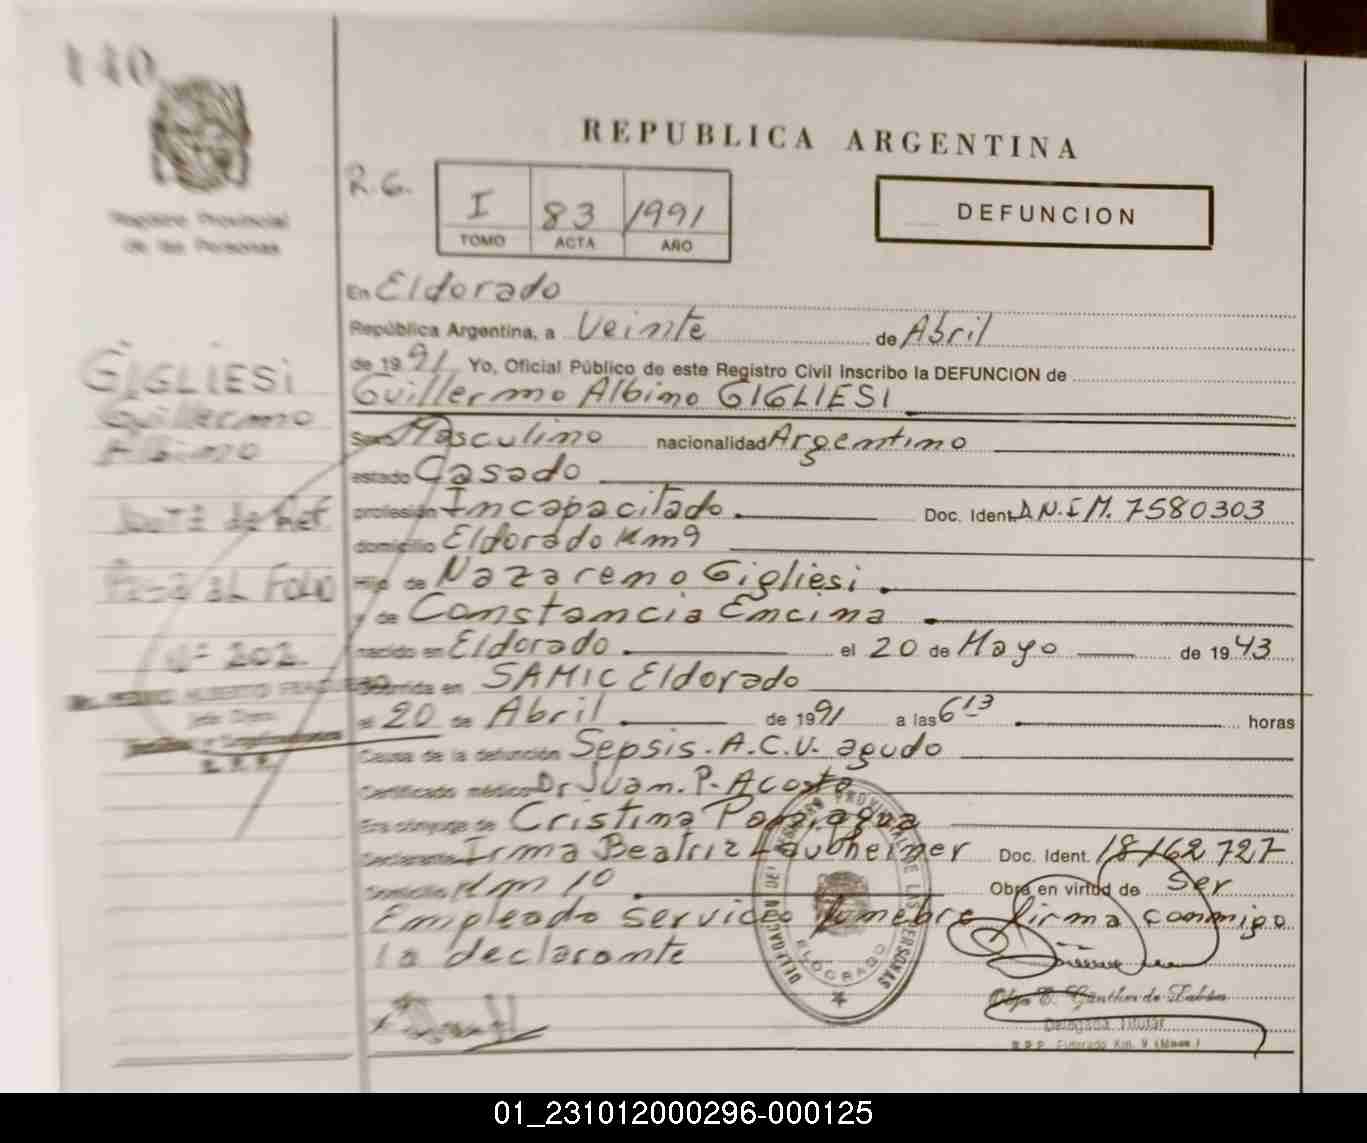 140
REPUBLICA ARGENTINA
Registro Provincial
de las Personas
R.G.
I 83 1991
TOMO ACTA AÑO
DEFUNCION
En Eldorado
República Argentina, a Veinte de Abril
de 1991 Yo, Oficial Público de este Registro Civil Inscribo la DEFUNCION de
Guillermo Albino GIGLIESI
Sexo Masculino nacionalidad Argentino
estado Casado
profesión Incapacitado Doc. Ident. D.N.I.M. 7580303
domicilio Eldorado Km 9
Hijo de Nazareno Gigliesi
y de Constancia Encina
nacido en Eldorado el 20 de Mayo de 1943
Ocurrida en SAMIC Eldorado
el 20 de Abril de 1991 a las 6 13 horas
Causa de la defunción Sepsis. A.C.V. agudo
Certificado médico Dr Juan. P. Acosta
Era cónyuge de Cristina
Declarante Irma Beatriz Laubheimer Doc. Ident. 18162727
Domicilio Km 10 Obra en virtud de Ser
Empleado servicio funebre firma conmigo
la declarante
GIGLIESI
Guillermo
Albino
de Ref.
Pasa al Folio
Nº 202.
DELEGACION DEL REGISTRO PROVINCIAL DE LAS PERSONAS
ELDORADO
Olga E. Günther de
Delegada Titular
R.P.P. Eldorado Km. 9 (Mnes.)
01_231012000296-000125